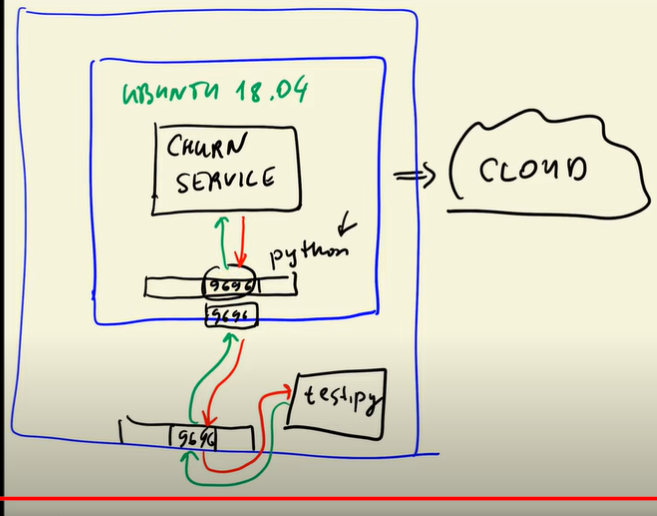 UBUNTU 18.04
CHURN
SERVICE
CLOUD
python
9696
9696
test.py
9696